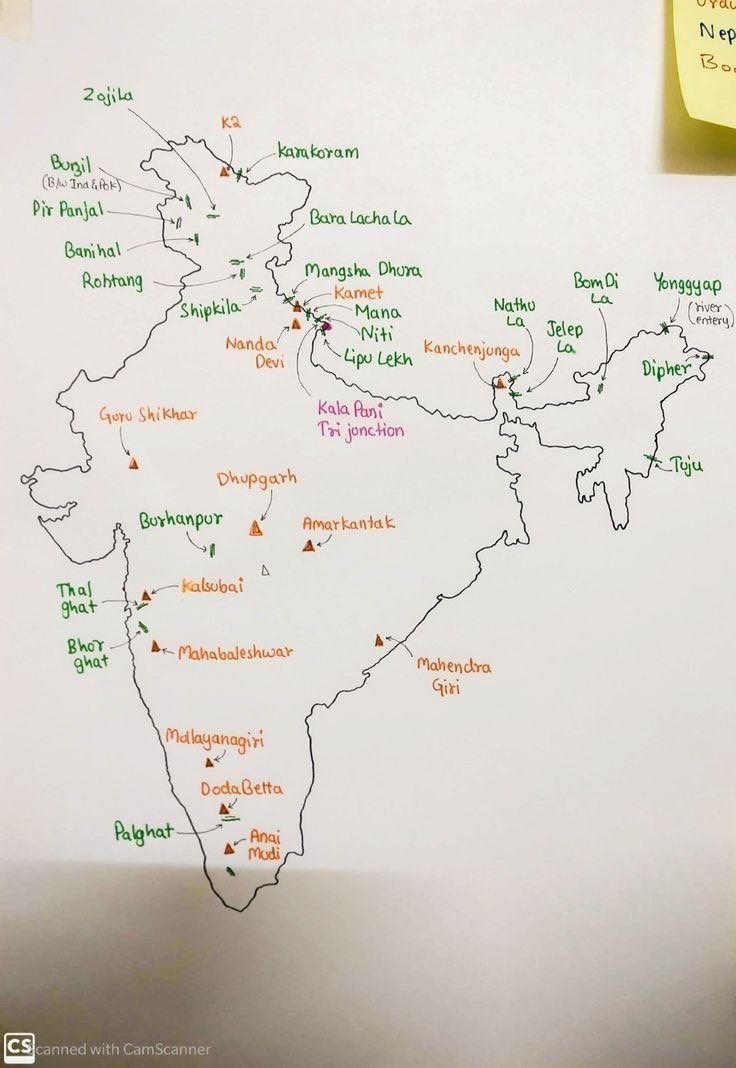 Urdu
Nep
Bo
Zojila
K2
Karakoram
Burzil
(B/w Ind & Pok)
Pir Panjal
Bara Lacha La
Banihal
Rohtang
Mangsha Dhura
Kamet
Shipkila
Mana
Niti
Lipu Lekh
Nanda
Devi
Kala Pani
Tri jonction
Kanchenjunga
Nathu
La
Jelep
La
BomDi
La
Yonggyap
(river
entery)
Dipher
Tuju
Goru Shikhar
Dhupgarh
Burhanpur
Amarkantak
Thal
ghat
Kalsubai
Bhor
ghat
Mahabaleshwar
Mahendra
Giri
Mullayanagiri
Doda Betta
Palghat
Anai
Mudi
CS
canned with CamScanner